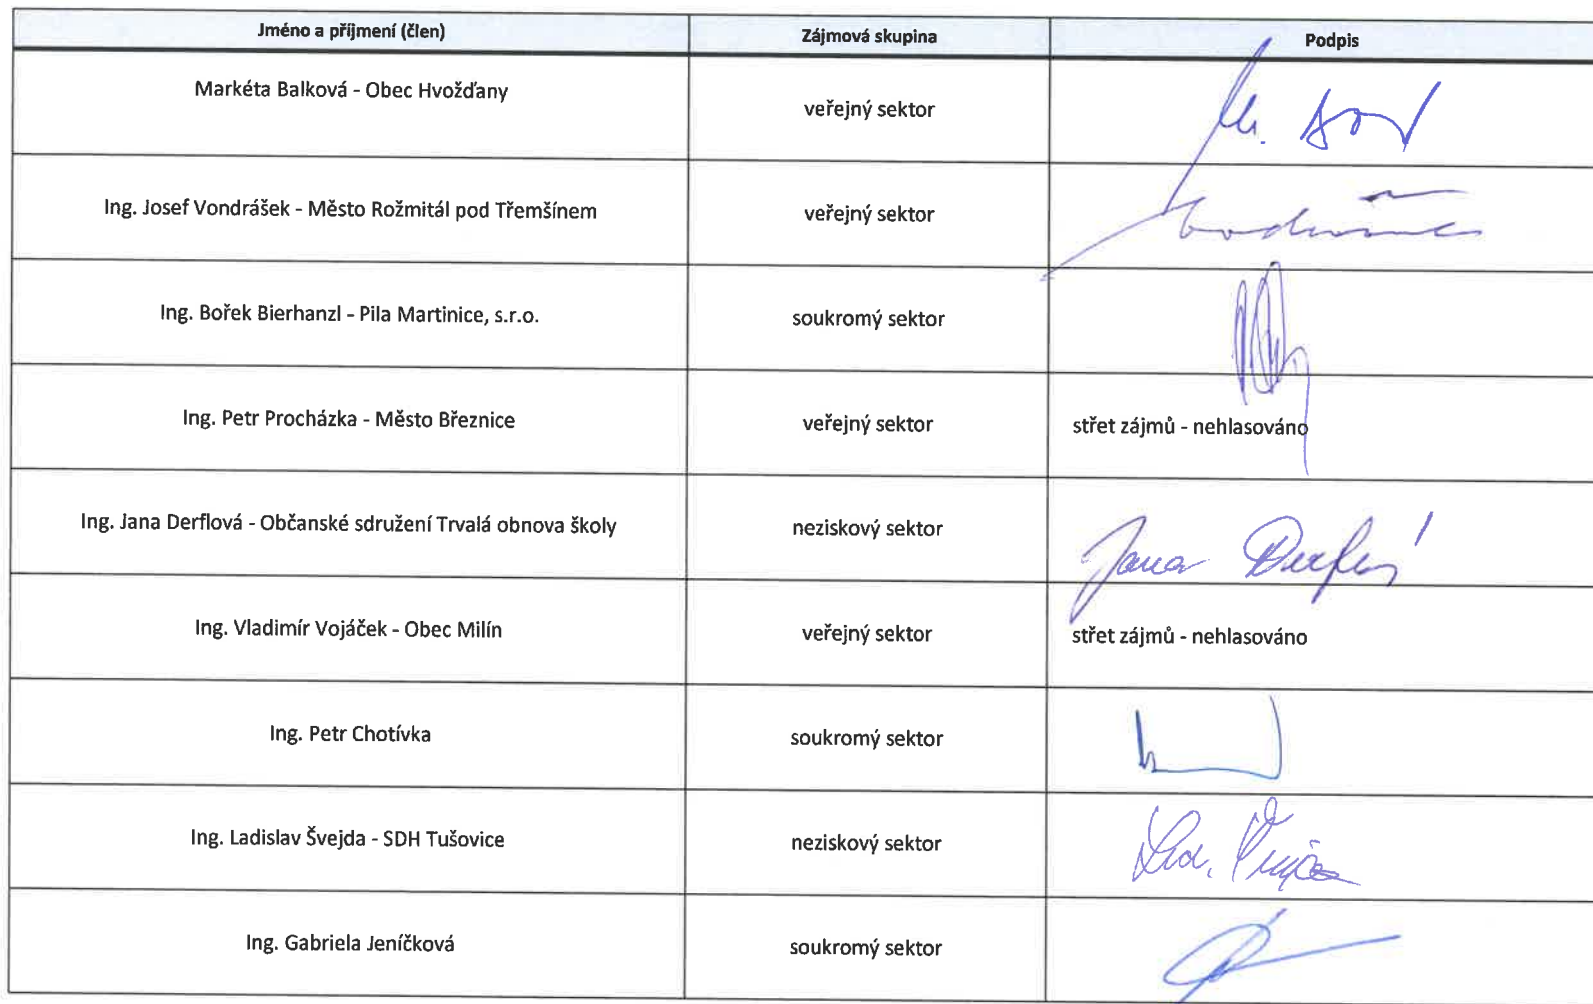 Jméno a příjmení (člen) Zájmová skupina Podpis
Markéta Balková - Obec Hvožďany veřejný sektor
Ing. Josef Vondrášek - Město Rožmitál pod Třemšínem veřejný sektor
Ing. Bořek Bierhanzl - Pila Martinice, s.r.o. soukromý sektor
Ing. Petr Procházka - Město Březnice veřejný sektor střet zájmů - nehlasováno
Ing. Jana Derflová - Občanské sdružení Trvalá obnova školy neziskový sektor Jana
Ing. Vladimír Vojáček - Obec Milín veřejný sektor střet zájmů - nehlasováno
Ing. Petr Chotívka soukromý sektor
Ing. Ladislav Švejda - SDH Tušovice neziskový sektor
Ing. Gabriela Jeníčková soukromý sektor